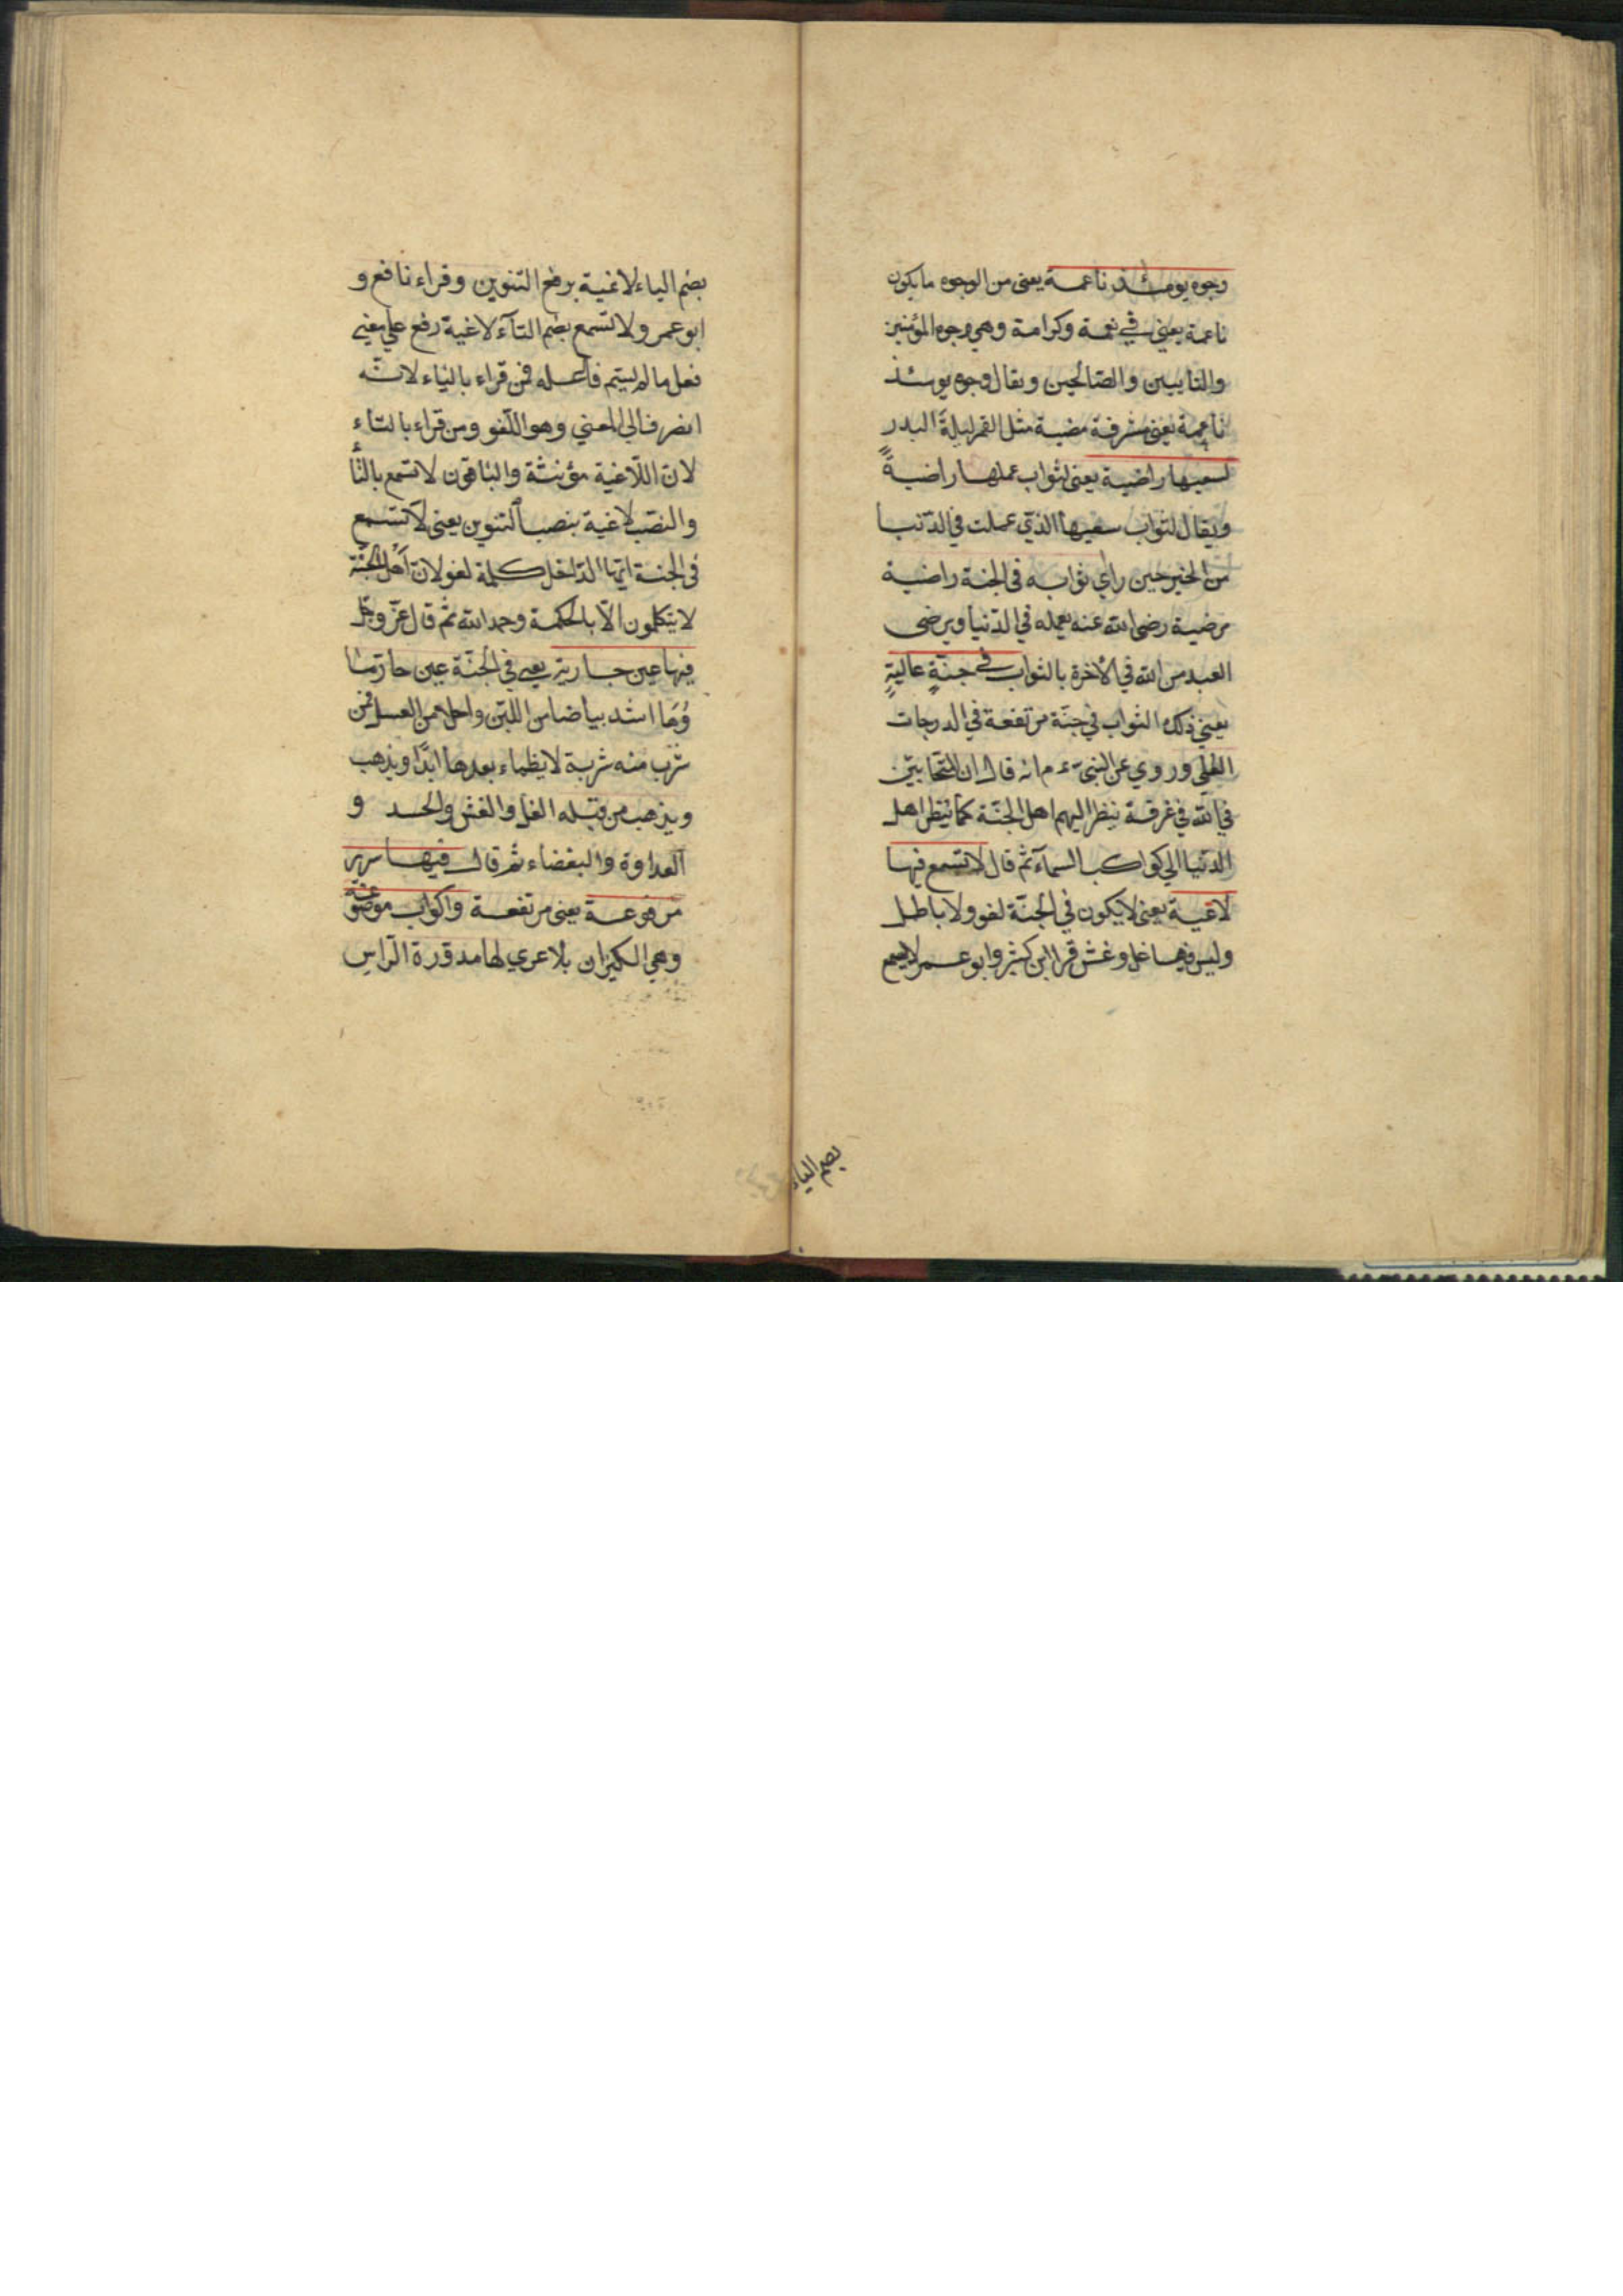 وجوه يومئذ ناعمة يعنى من الوجوه ما يكون
ناعمة يعني في نعمة وكرامة وهي وجوه المؤمنين
والتايبين والصّالحين ويقال وجوه يومئذ
ناعمة يعنى مشرفة مضية مثل القمر ليلة البدر
لسعيها راضية يعنى لثواب عملها راضيةً
ويقال لثواب سعيها الذي عملت في الدّنيا
من الخير حين راي ثوابه فى الجنة راضية
مرضية رضى الله عنه بعمله في الدّنيا ويرضى
العبد من الله في الاخرة بالثواب في جنّةٍ عاليةٍ
يعني ذلك الثواب في جنّة مرتفعة في الدرجات
العلى وروي عن النبي ء م انه قال ان المتحابّين
في الله في غرفة ينظر اليهم اهل الجنّة كما ينظر اهل
الدّنيا الي كواكب السمآء ثم قال لا تسمع فيها
لاغية يعنى لا يكون في الجنّة لغو ولا باطل
وليس فيها غل وغش قرا ابن كثير وابو عمر لا يسمع
بضم الياء
بضم الياء لاغية برفع التنوين وقراء نافع و
ابو عمر ولا تسمع بضم التآء لاغية رفع علي معني
فعل ما لم يسم فاعله فمن قراء بالياء لانّه
انصرف الى المعني وهو اللّغو ومن قراء بالتاء
لان اللّاغية مؤنثة والباقون لا تسمع بالتّا
والنصب لاغية بنصب التنوين يعنى لا تسمع
فى الجنة ايّها الدّاخل كلمة لغو لان اهل الجنّة
لا يتكلمون الّا بالحكمة وحمد الله ثم قال عزّ وجلّ
فيها عين جارية يعى في الجنّة عين جارية ما
ؤها اشد بياضا من اللّبن واحلى من العسل فمن
شرب منه شربة لا يظماء بعدها ابدًا ويذهب
ويذهب من قبله الغل والغش والحسد و
العداوة والبغضاء ثم قال فيها سرر
مرفوعة يعنى مرتفعة واكواب موضوعة
وهي الكيزان بلا عري لها مدوّرة الرّاس